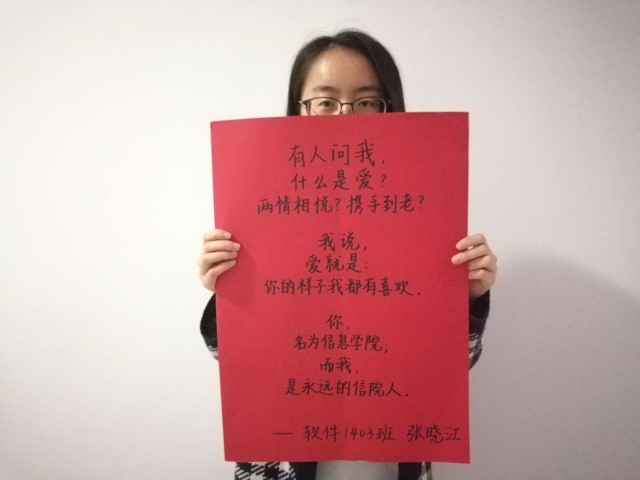 有人问我，
什么是爱？
两情相悦？携手到老？
我说，
爱就是：
你的样子我都有喜欢．
你．
名为信息学院；
而我．
是永远的信院人．
—— 软件1403班 张晓江